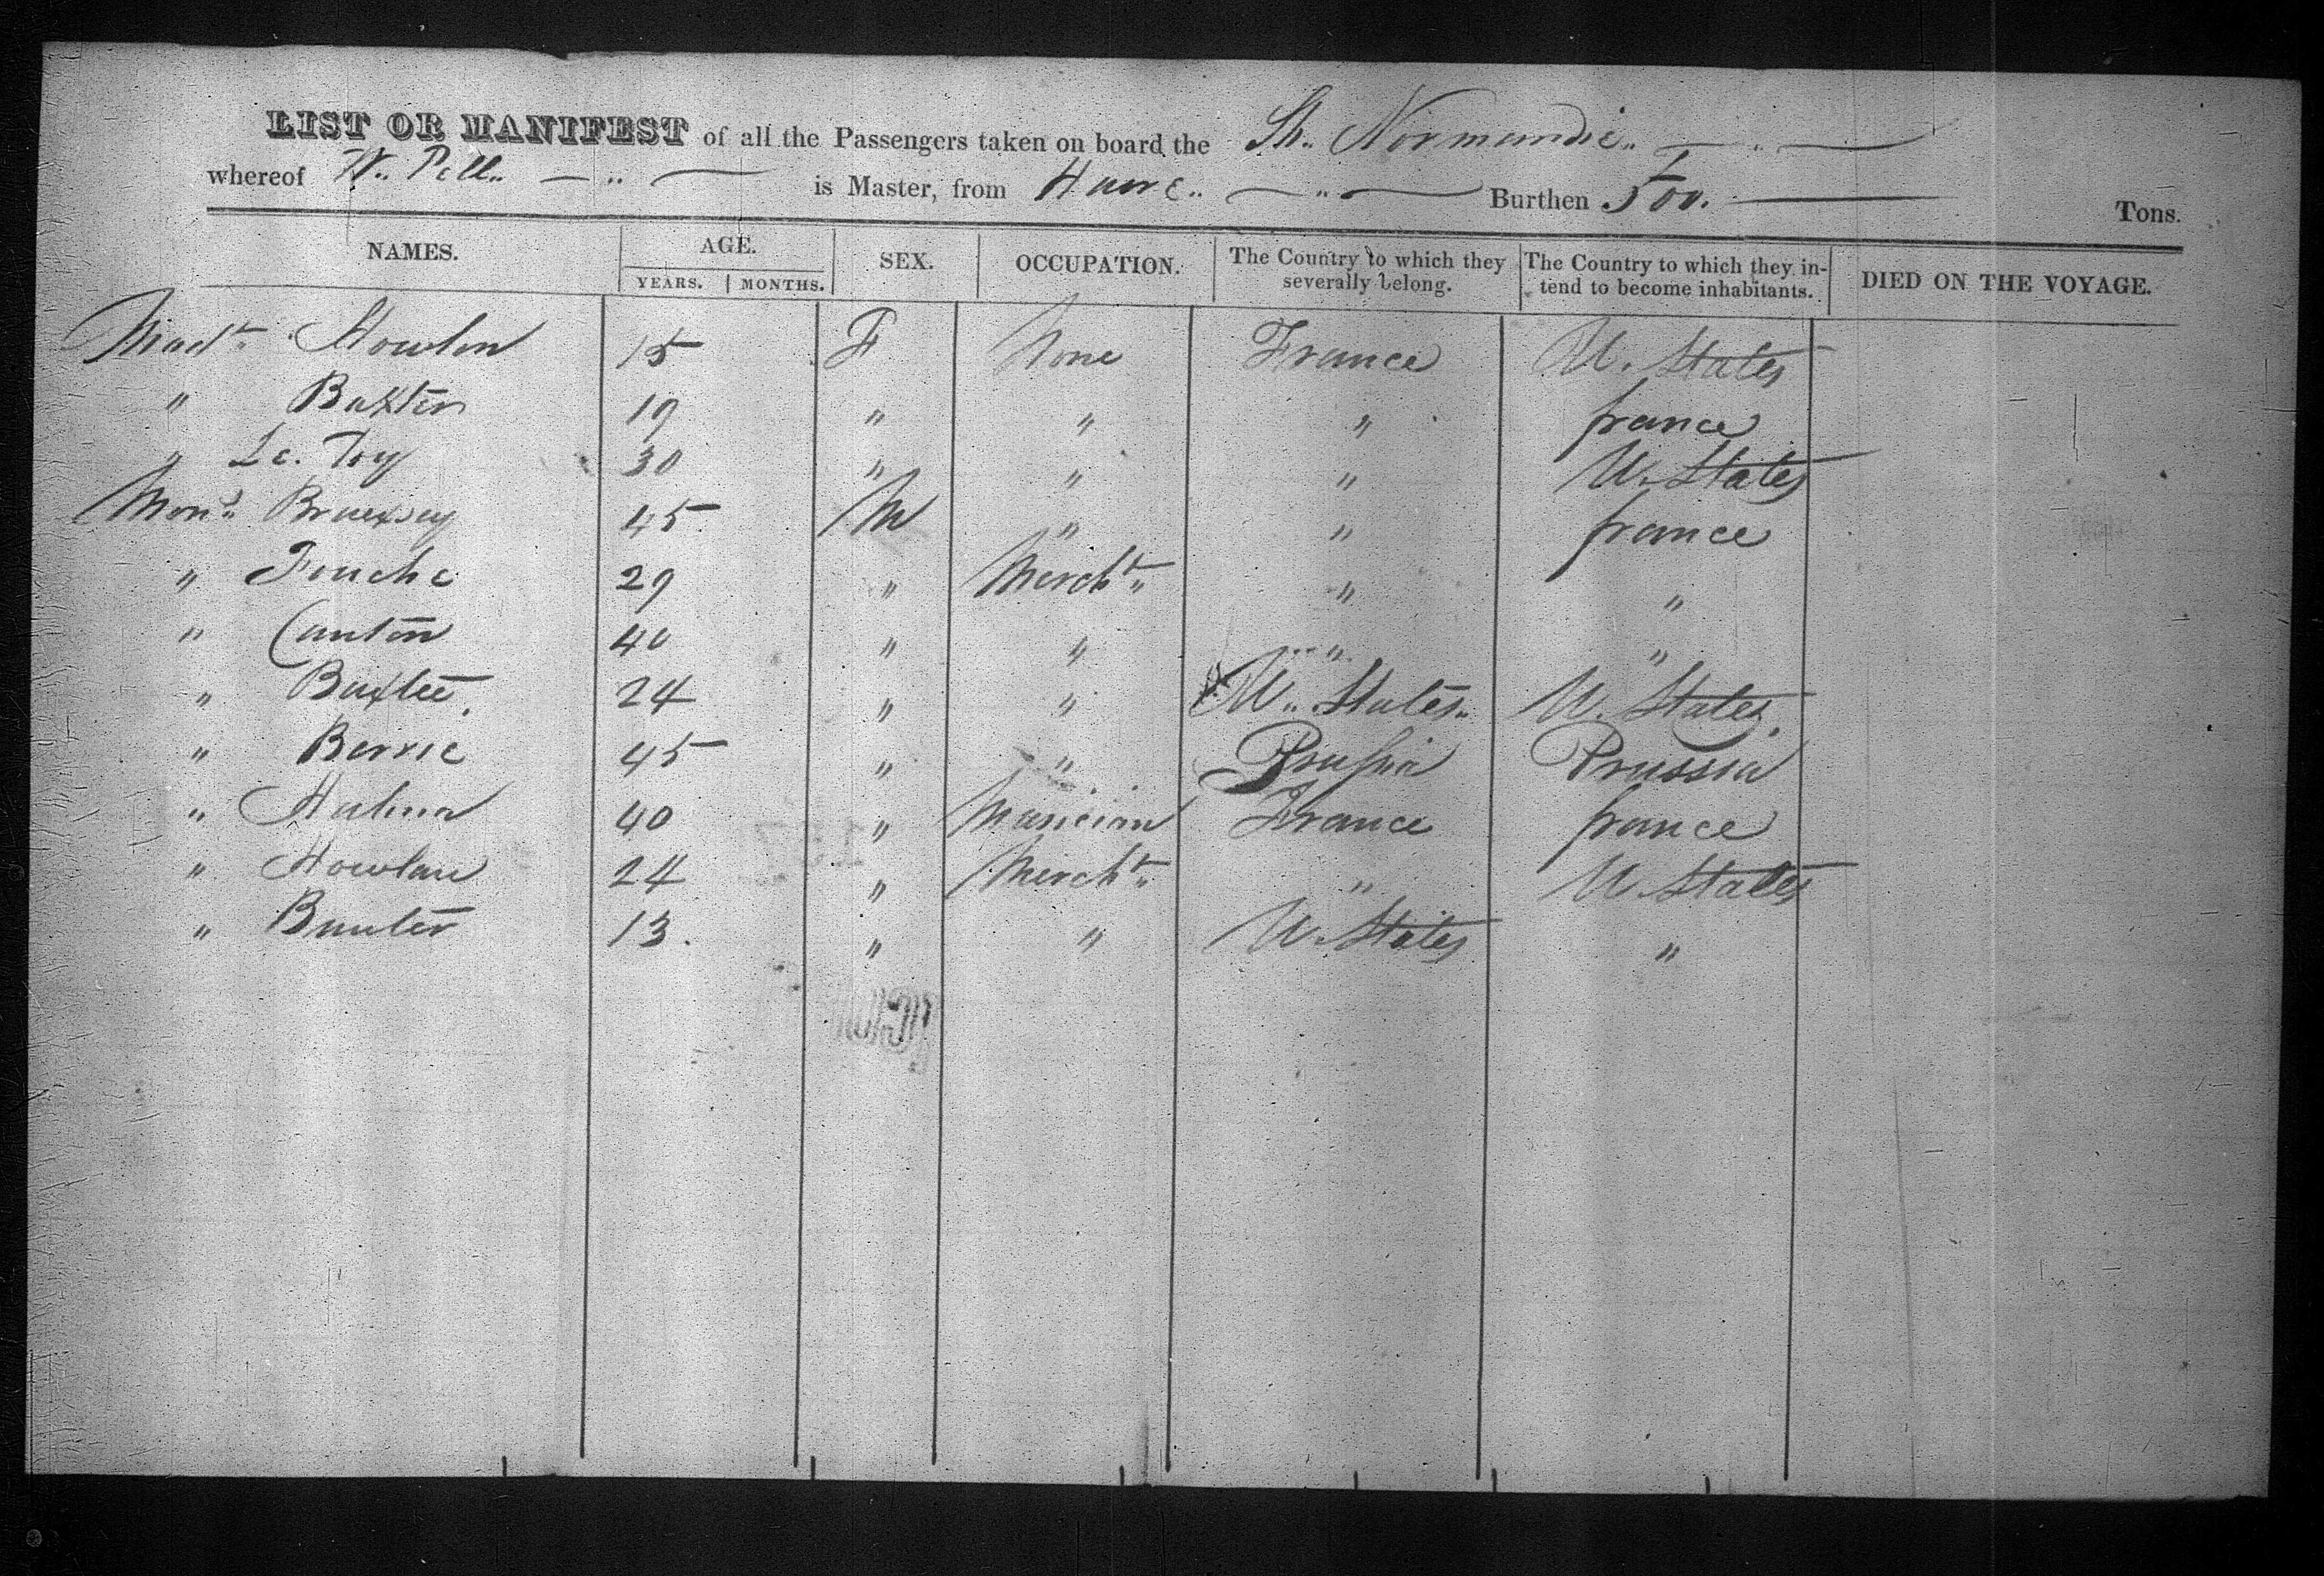 LIST OR MANIFEST of all the Passengers taken on board the Sh.. Normandie..
whereof W.. Pell.. is Master, from Havre.. Burthen 500. Tons.
NAMES. AGE. YEARS. MONTHS. SEX. OCCUPATION. The Country to which they severally belong. The Country to which they intend to become inhabitants. DIED ON THE VOYAGE.
Howlen 15 F None France U. States
" Baxter 19 " " " france
" Le. Toy 30 " " " U. States
Mons.. 45 M " " france
" Fouche 29 " Mercht.. " "
" Canton 40 " " " "
" 24 " " U.. States.. U. States.
" 45 " " Prussia Prussia
" 40 " Musician France france
" Howlan 24 " Mercht.. " U States
" 13. " " U. States "